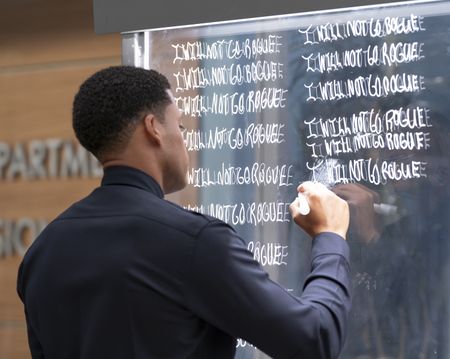 I WILL NOT GO ROGUE
I WILL NOT GO ROGUE
I WILL NOT GO ROGUE
I WILL NOT GO ROGUE
I WILL NOT GO ROGUE
WILL NOT GO ROGUE
ROGUE
I WILL NOT GO ROGUE
I WILL NOT GO ROGUE
I WILL NOT GO ROGUE
I WILL NOT GO ROGUE
I WILL NOT GO ROGUE
I WILL NOT GO ROGUE
PARTMEN
SION